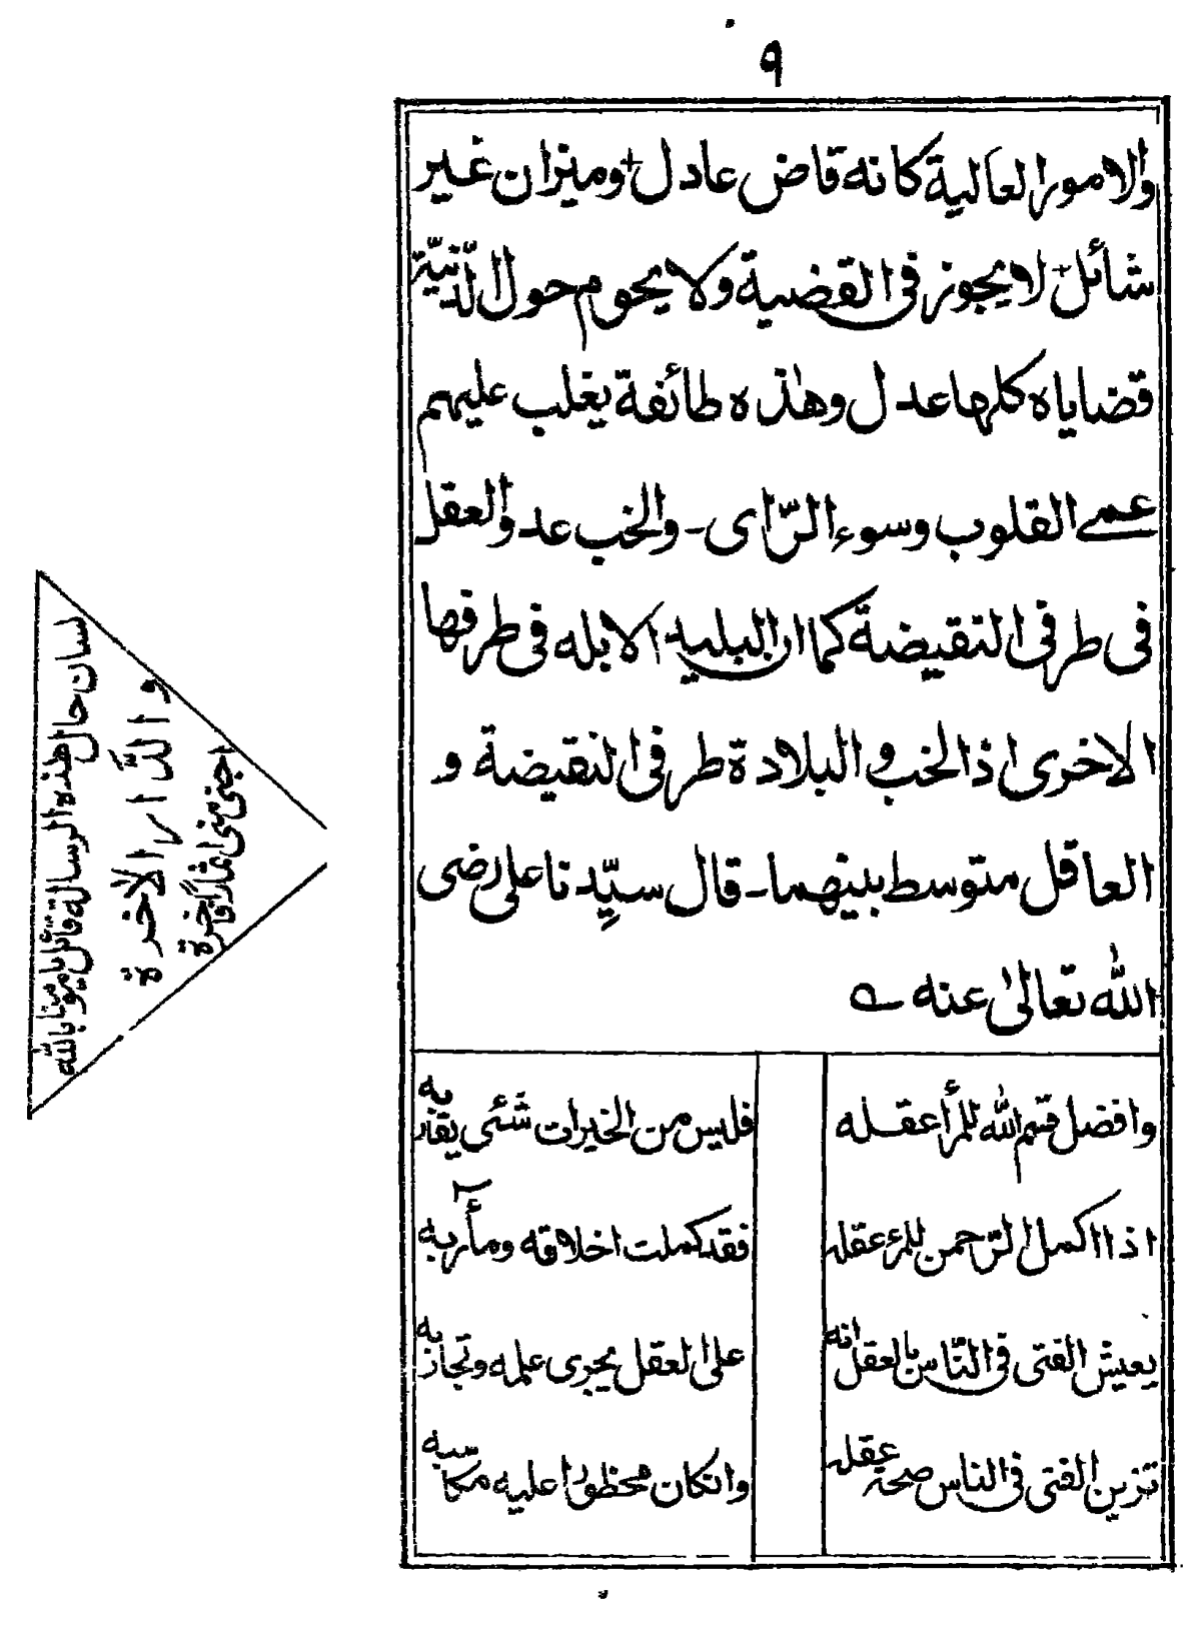 ٩
والامور العالية كانه قاض عادل وميزان غير
شائل لا يجوز فى القضية ولا يحوم حول الدّنيّة
قضاياه كلها عدل وهٰذه طائفة يغلب عليهم
عمے القلوب وسوء الرّاى ـ والخب عد والعقل
فى طرفى النقيضة كما ان البليد الابله فى طرفها
الاخرى اذ الخب والبلادة طرفى النقيضة و
العاقل متوسط بينهما ـ قال سيّدنا على رضى
الله تعالىٰ عنه ے
وافضل قسم الله للمرأ عقله فليس من الخيرات شئى يقاربه
اذا اكمل الرّحمن للمرء عقله فقد كملت اخلاقه ومآربه
يعيش الفتى فى النّاس بالعقل انه على العقل يجرى علمه وتجاربه
تزين الفتى فى الناس صحة عقله وانكان محظورا عليه مكاسبه
لسان حال هٰذه الرسالة قائل يا مومنا بالله
والدّار الاخرة
اجنى منى اثمارا فاخرة